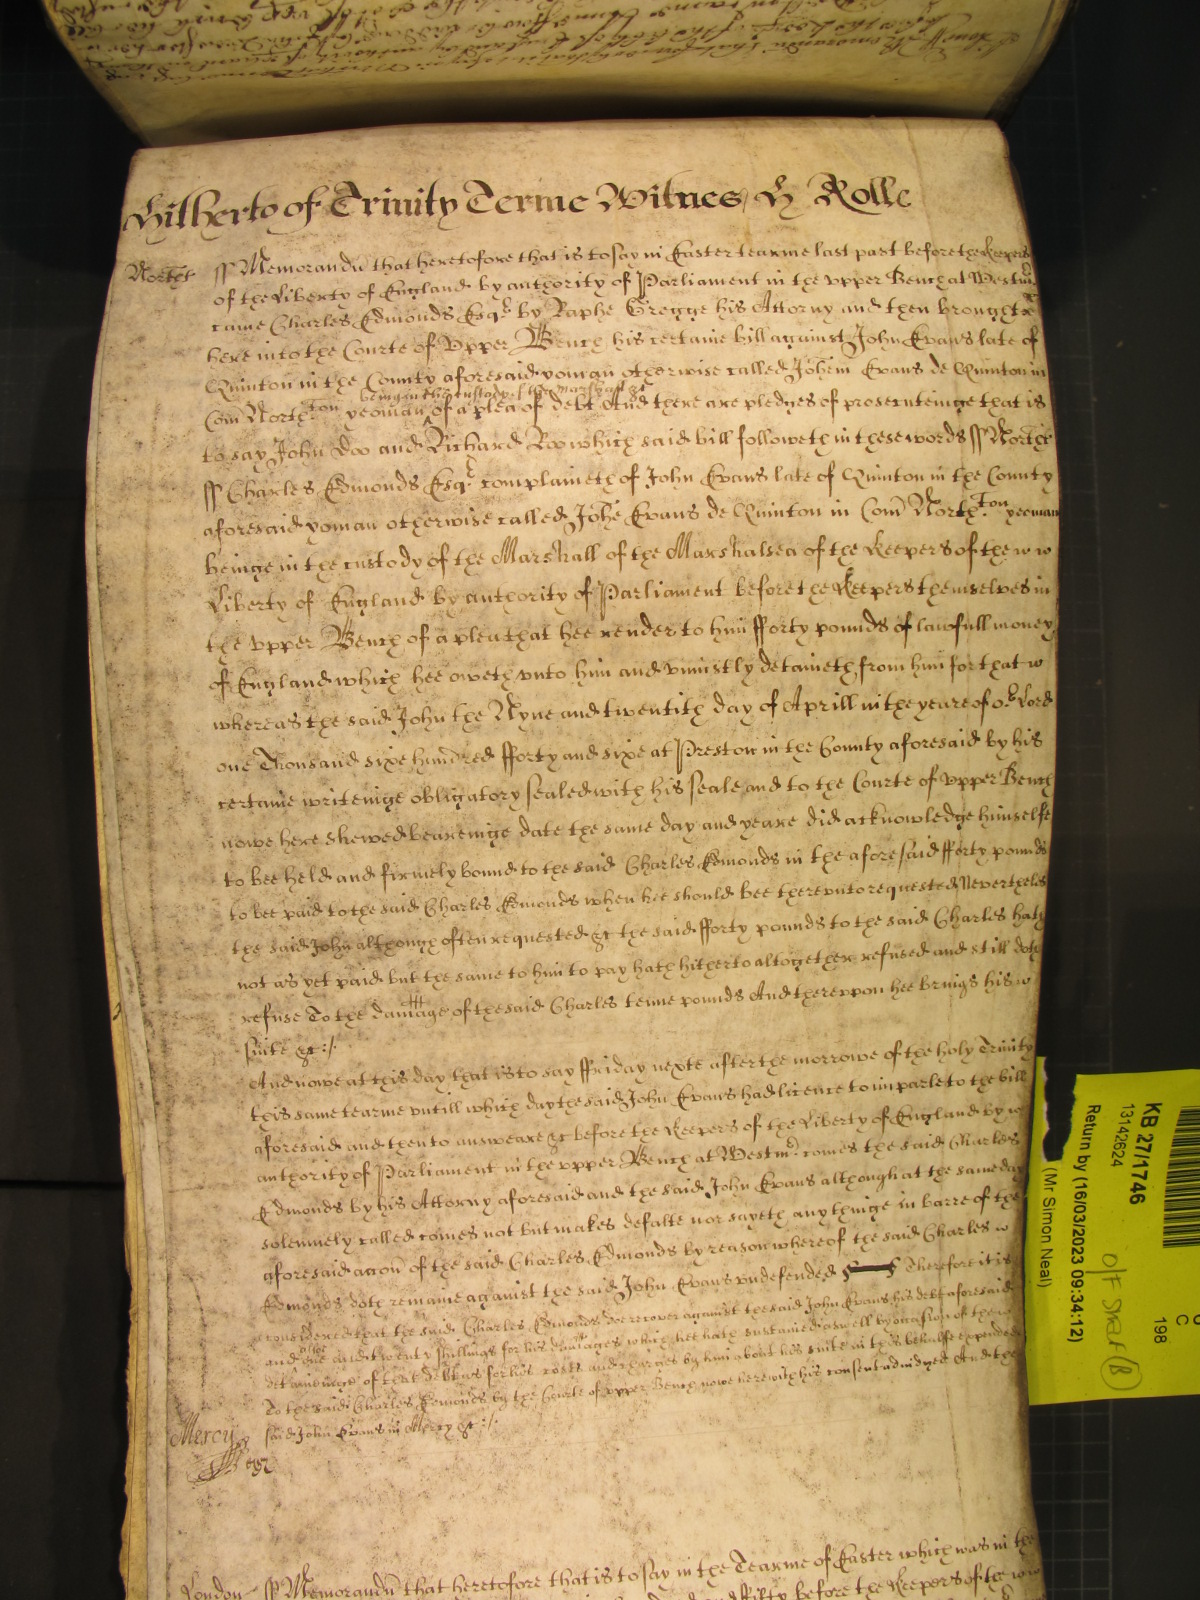 Hitherto of Trinity Terme Witnes H Rolle
North't ss Memorandu that heretofore that is to say in Easter tearme last past before the Keepers
of the Liberty of England by authority of Parliament in the upper Bench at Westmr
came Charles Edmonds Esqr by Raphe Gregge his Attorny and then brought
here into the Courte of Upper Bench his certaine bill against John Evans late of
Quinton in the County aforesaid yoman otherwise called Johem Evans de Quinton in
being in the custody of the marshall &c
Com North:ton yeoman of a plea of debt And there are pledges of prosecuteinge that is
to say John Doo and Richard Roo which said bill followeth in these words ss North't
ss Charles Edmonds Esqr complaineth of John Evans late of Quinton in the County
aforesaid yoman otherwise called Johe Evans de Quinton in Com North:ton yeoman
beinge in the custody of the Marshall of the Marshalsea of the Keepers of the
Liberty of England by authority of Parliament before the Keepers themselves in
the upper Bench of a plea that hee render to him fforty pounds of lawfull money
of England which hee oweth unto him and uniustly detaineth from him for that
whereas the said John the Nyne and twentith day of Aprill in the yeare of or Lord
one Thousand sixe hundred fforty and sixe at Preston in the County aforesaid by his
certaine writeinge obligatory sealed with his seale and to the Courte of upper Bench
nowe here shewed beareinge date the same day and yeare did acknowledge himselfe
to bee held and firmely bound to the said Charles Edmonds in the aforesaid fforty pounds
to bee paid to the said Charles Edmonds when hee should bee thereunto requested Neverthels
the said John although often requested &c the said fforty pounds to the said Charles hath
not as yet paid but the same to him to pay hath hitherto altogether refused and still doth
refuse To the damage of the said Charles tenne pounds And thereupon hee brings his
suite &c:/.
And nowe at this day that is to say ffriday nexte after the morrowe of the holy Trinity
this same tearme untill which day the said John Evans had licence to imparle to the bill
aforesaid and then to answeare &c before the Keepers of the Liberty of England by
authority of Parliament in the upper Bench at Westmr comes the said Charles
Edmonds by his Attorny aforesaid and the said John Evans although at the same day
solemnely called comes not but makes defalte nor sayeth any thinge in barre of the
aforesaid accon of the said Charles Edmonds by reason whereof the said Charles
Edmonds doth remaine against the said John Evans undefended Therefore it is
considered that the said Charles Edmonds doe recover against the said John Evans his debt aforesaid
and one and twenty shillings for his damages which hee hath sustained aswell by occasion of the
detaineinge of that debt as for his costs and charges by him about his suite in this behalfe expended
To the said Charles Edmonds by the Courte of upper Bench nowe here with his consent adiudged And the
said John Evans in Mercy &c:/.
Mercy
London ss Memorandu that heretofore that is to say in the Tearme of Easter which was in the
and fifty before the Keepers of the
KB 27/1746
13142624
Return by (16/03/2023 09:34:12)
(Mr Simon Neal)
198
C